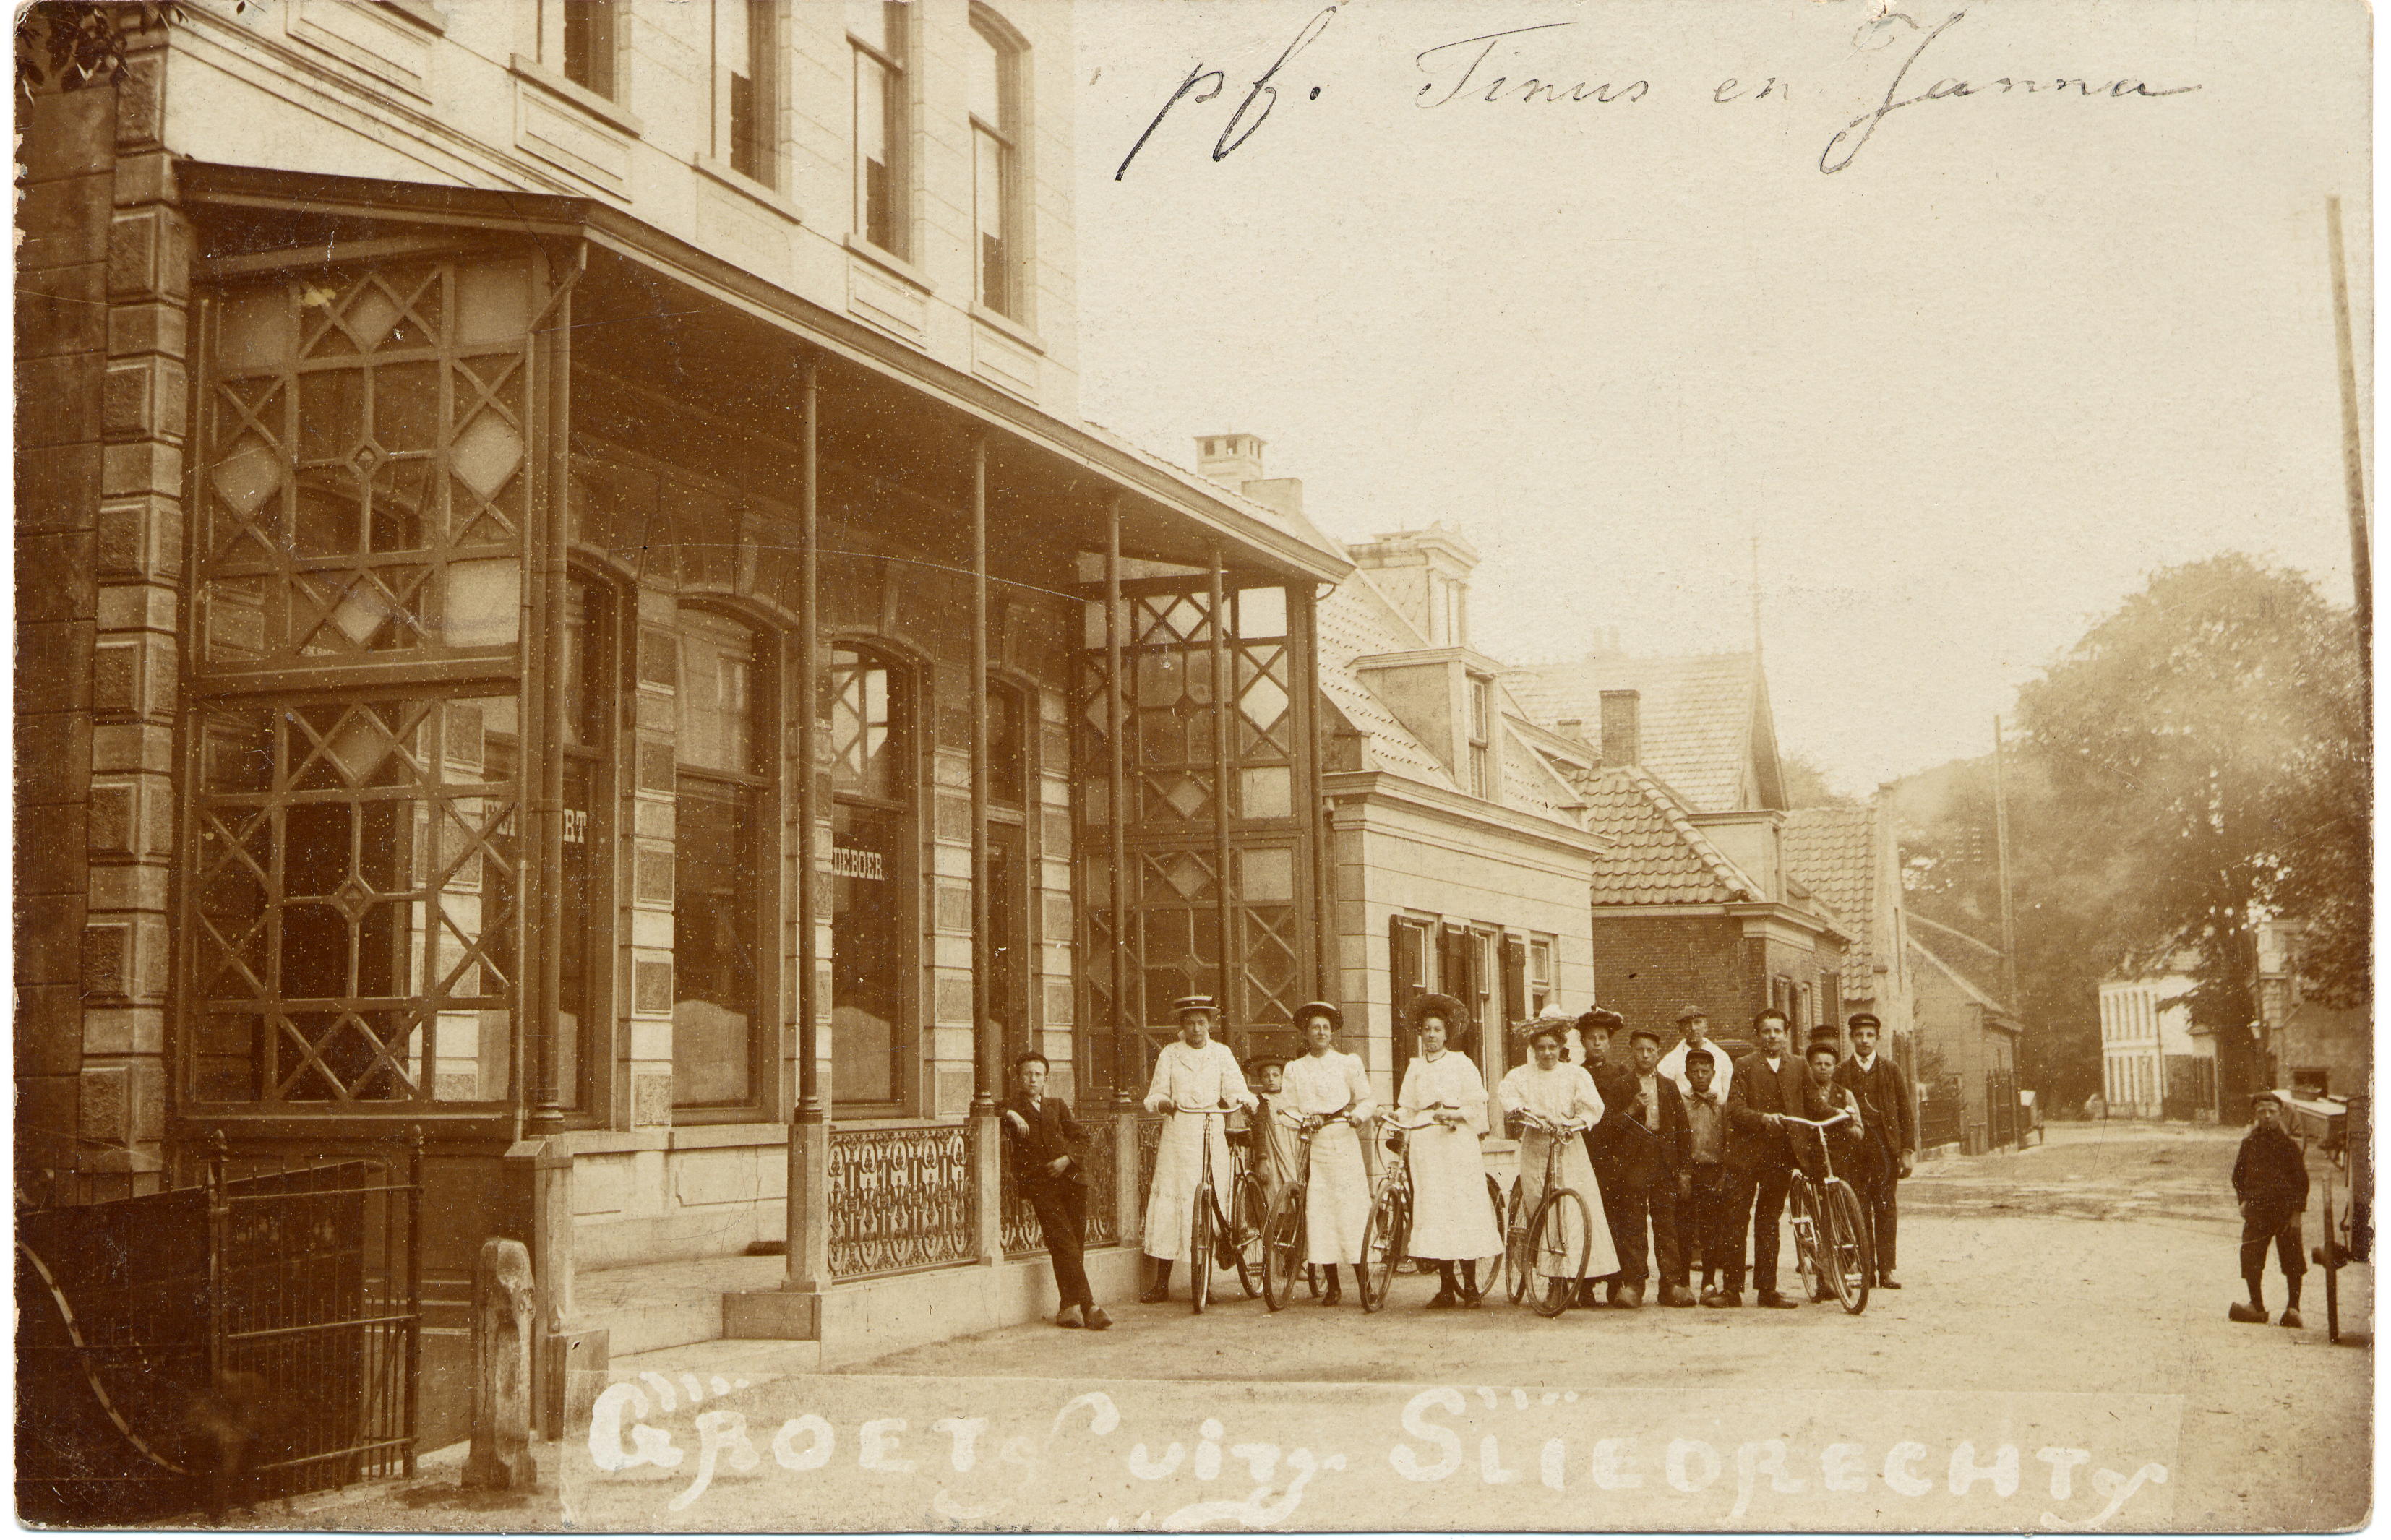 pf. Tinus en Janna
DEBOER.
GROET uit SLIEDRECHT